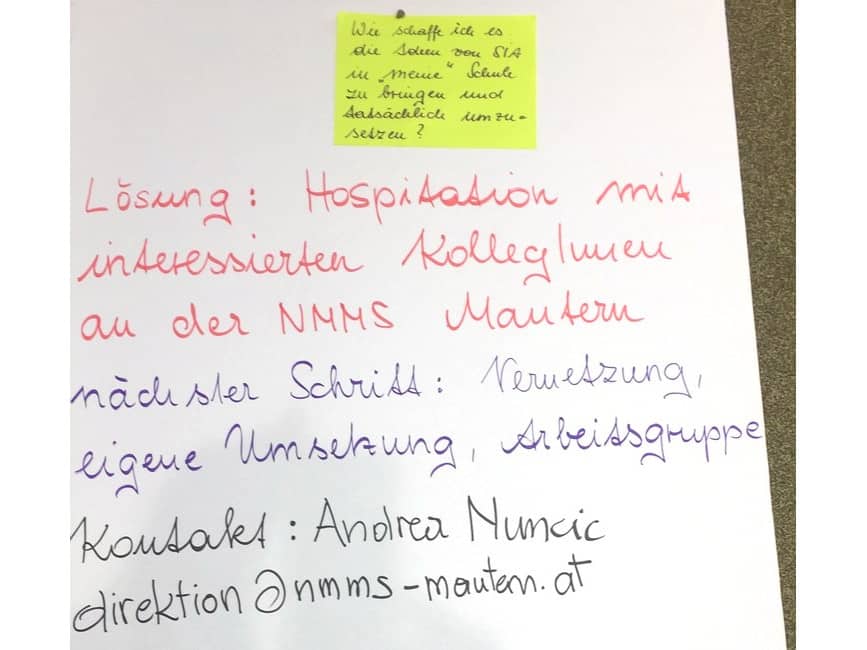 Wie schaffe ich es
die Ideen von SIA
in "meine" Schule
zu bringen und
tatsächlich umzu-
setzen?
Lösung: Hospitation mit
interessierten KollegInnen
an der NMMS Mautern
nächster Schritt: Vernetzung,
eigene Umsetzung, Arbeitsgruppe
Kontakt: Andrea
direktion@nmms-mautern.at